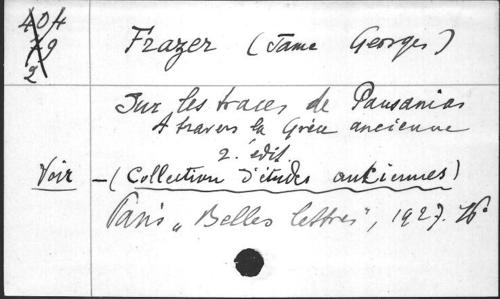 404
79
2
Frazer (Jame Georges)
Sur les traces de Pausanias
A travers la Grèce ancienne
2. édit.
Voir – (Collection d'études anciennes)
Paris „Belles lettres", 1927. 16º